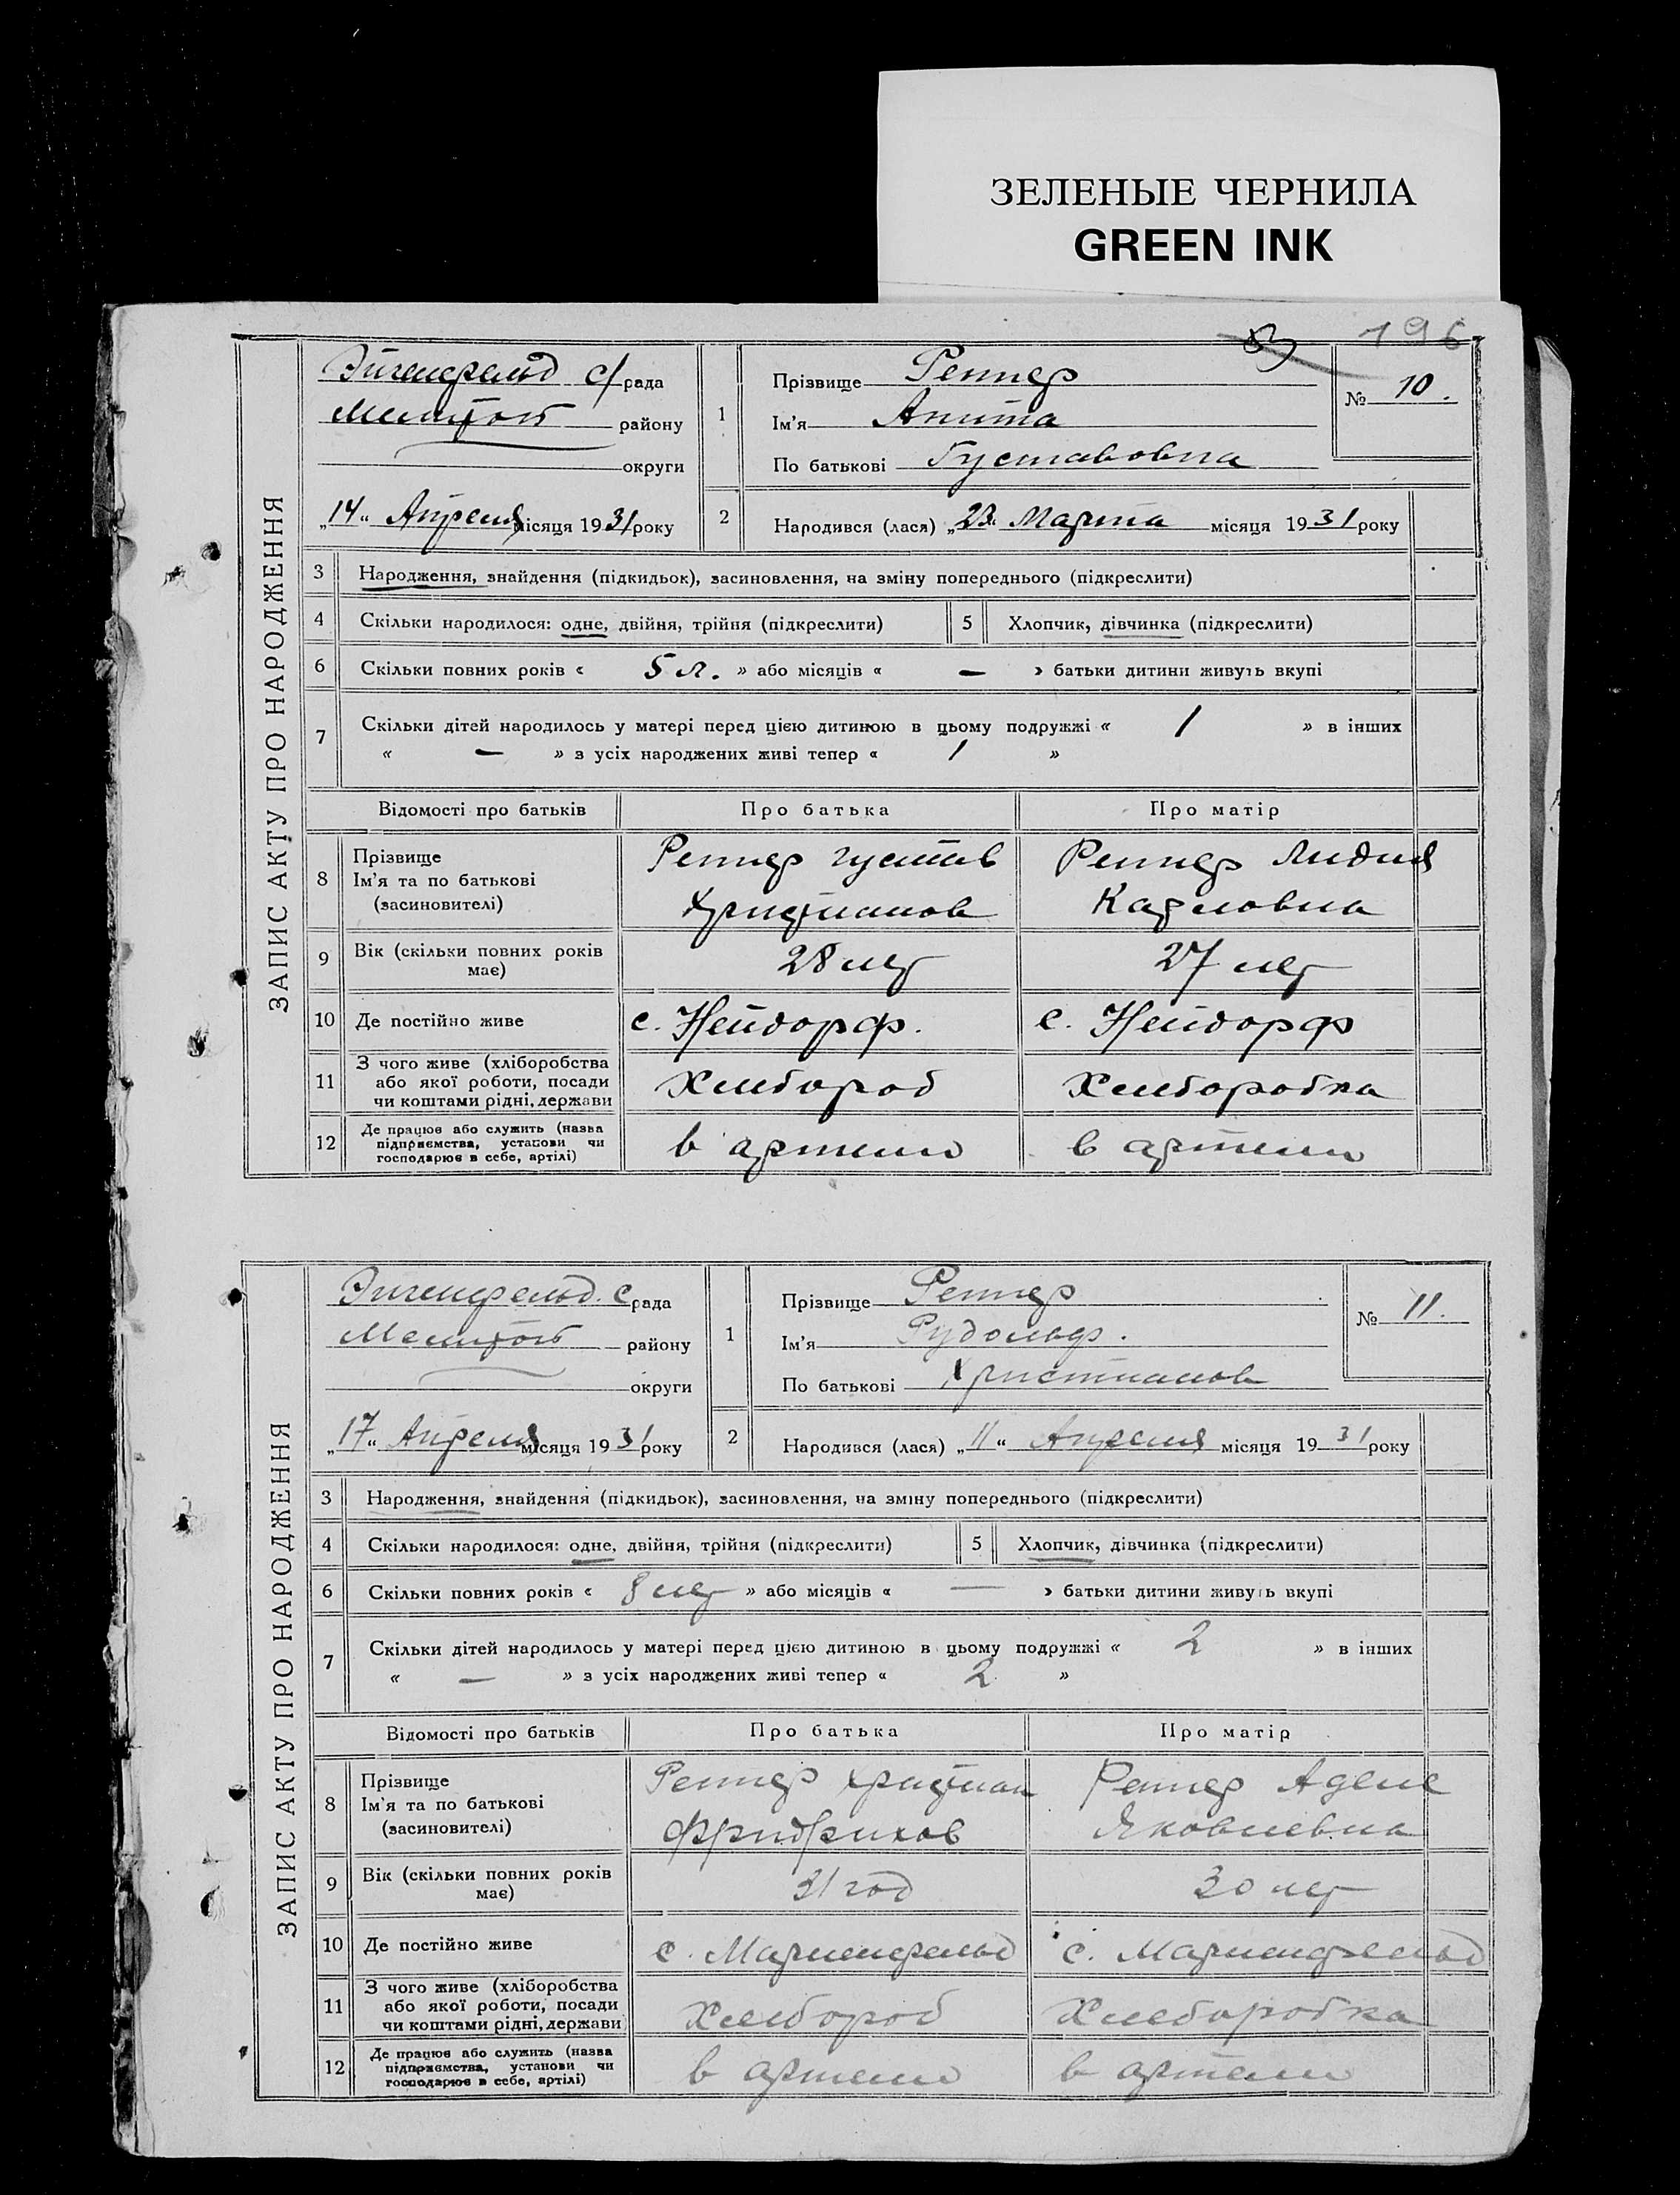 ЗЕЛЕНЫЕ ЧЕРНИЛА
GREEN INK
196
ЗАПИС АКТУ ПРО НАРОДЖЕННЯ
Эйгенфельд с/рада
Мелитоп району
округи
„14“ Апреля місяця 1931 року
1
Прізвище Реппер
Ім'я Анита
По батькові Густавовна
№ 10.
2
Народився (лася) „23“ Марта місяця 1931 року
3 Народження, знайдення (підкидьок), засиновлення, на зміну попереднього (підкреслити)
4 Скільки народилося: одне, двійня, трійня (підкреслити) 5 Хлопчик, дівчинка (підкреслити)
6 Скільки повних років « 5 л. » або місяців « — » батьки дитини живуть вкупі
7 Скільки дітей народилось у матері перед цією дитиною в цьому подружжі « 1 » в інших
« — » з усіх народжених живі тепер « 1 »
Відомості про батьків Про батька Про матір
8 Прізвище Ім'я та по батькові (засиновителі)
Реппер Густав Реппер Лидия
Христианов Карловна
9 Вік (скільки повних років має) 28 лет 27 лет
10 Де постійно живе с. Нейдорф. с. Нейдорф
11 З чого живе (хліборобства або якої роботи, посади чи коштами рідні, держави Хлебороб Хлеборобка
12 Де працює або служить (назва підприємства, установи чи господарює в себе, артілі) в артели в артели
ЗАПИС АКТУ ПРО НАРОДЖЕННЯ
Эйгенфельд. с рада
Мелитоп району
округи
„17“ Апреля місяця 1931 року
1
Прізвище Реппер
Ім'я Рудольф.
По батькові Христианов
№ 11.
2
Народився (лася) „11“ Апреля місяця 1931 року
3 Народження, знайдення (підкидьок), засиновлення, на зміну попереднього (підкреслити)
4 Скільки народилося: одне, двійня, трійня (підкреслити) 5 Хлопчик, дівчинка (підкреслити)
6 Скільки повних років « 8 лет » або місяців « — » батьки дитини живуть вкупі
7 Скільки дітей народилось у матері перед цією дитиною в цьому подружжі « 2 » в інших
« — » з усіх народжених живі тепер « 2 »
Відомості про батьків Про батька Про матір
8 Прізвище Ім'я та по батькові (засиновителі)
Реппер Христиан Реппер Аделе
Фридрихов Яковлевна
9 Вік (скільки повних років має) 31 год 30 лет
10 Де постійно живе с. Мариенфельд с. Мариенфельд
11 З чого живе (хліборобства або якої роботи, посади чи коштами рідні, держави Хлебороб Хлеборобка
12 Де працює або служить (назва підприємства, установи чи господарює в себе, артілі) в артели в артели